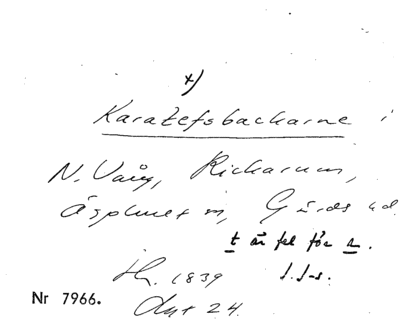 x)
Karatefsbackarne i
N. Vång, Rickarum,
Äsphult m, Gärds hd.
t är fel för r.
J. J-s.
1839
Nr 7966.
24